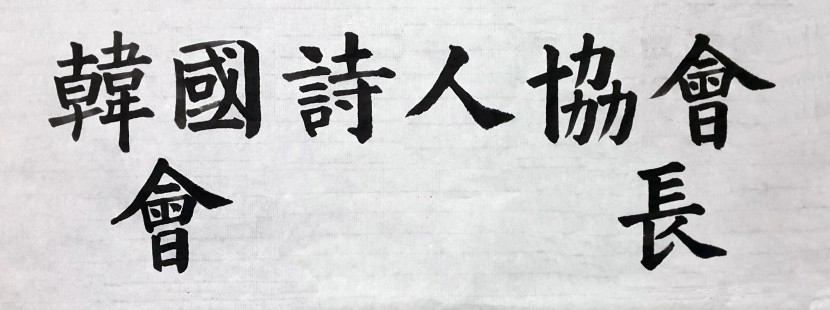 韓國詩人協會
會長